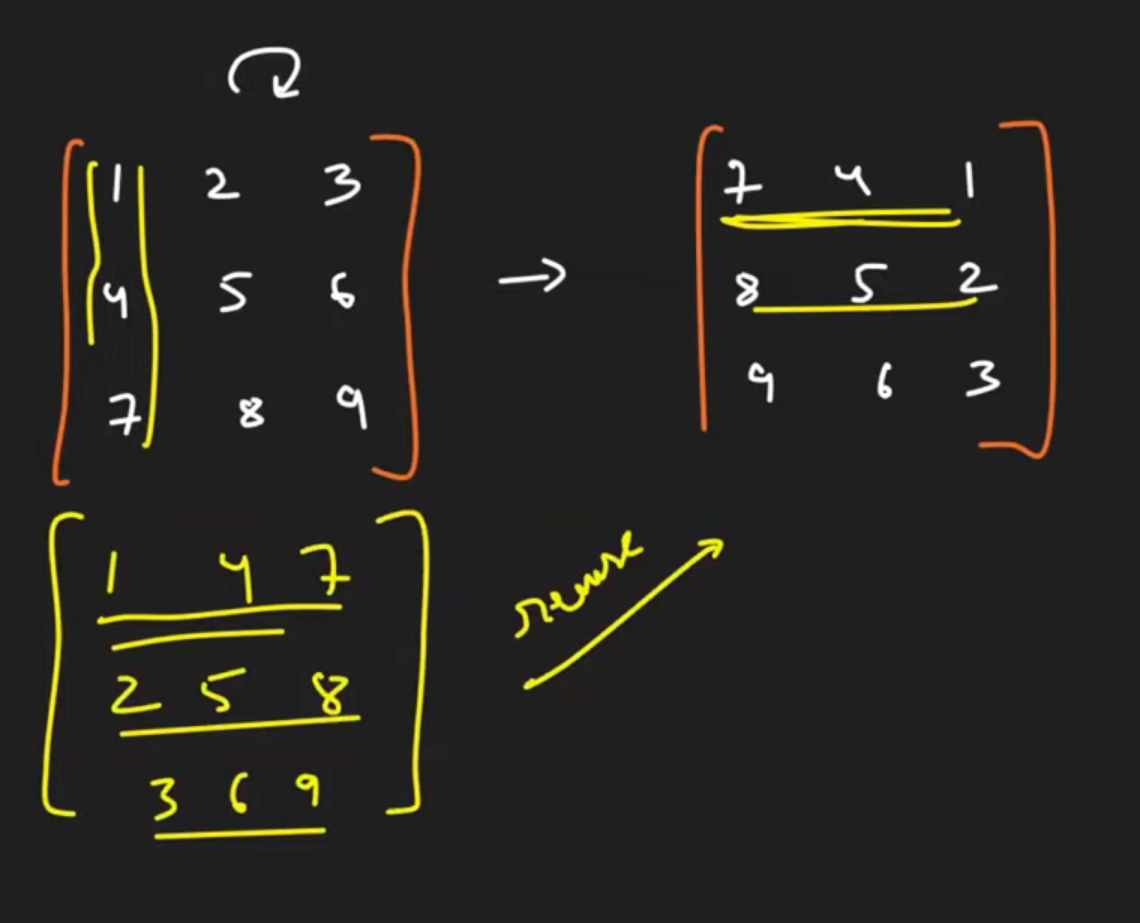 1 2 3
4 5 6
7 8 9
→
7 4 1
8 5 2
9 6 3
1 4 7
2 5 8
3 6 9
reverse